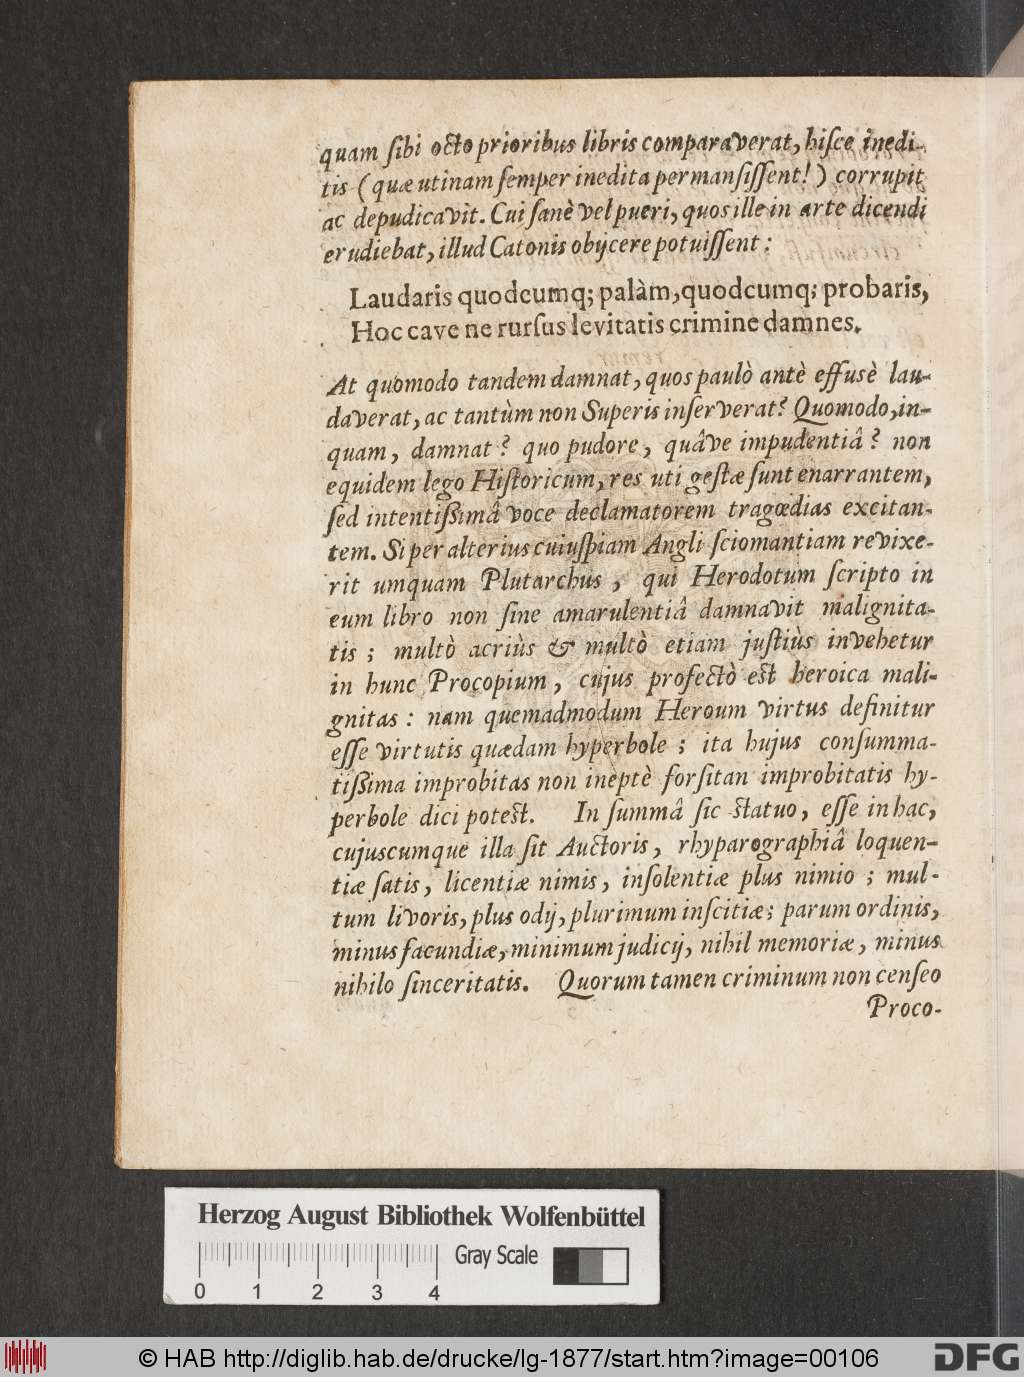 quam ſibi octo prioribus libris comparaverat, hiſce inedi-
tis (quæ utinam ſemper inedita permanſiſſent!) corrupit
ac depudicavit. Cui ſanè vel pueri, quos ille in arte dicendi
erudiebat, illud Catonis obijcere potuiſſent:
Laudaris quodcumq; palàm, quodcumq; probaris,
Hoc cave ne rurſus levitatis crimine damnes.
At quomodo tandem damnat, quos paulò antè effusè lau-
daverat, ac tantùm non Superis inſerverat? Quomodo, in-
quam, damnat? quo pudore, quâve impudentiâ? non
equidem lego Hiſtoricum, res uti geſtæ ſunt enarrantem,
ſed intentißimâ voce declamatorem tragœdias excitan-
tem. Si per alterius cuiuſpiam Angli ſciomantiam revixe-
rit umquam Plutarchus, qui Herodotum ſcripto in
eum libro non ſine amarulentiâ damnavit malignita-
tis; multò acriùs & multò etiam juſtiùs invehetur
in hunc Procopium, cujus profectò eſt heroica mali-
gnitas: nam quemadmodum Heroum virtus definitur
eſſe virtutis quædam hyperbole; ita hujus conſumma-
tißima improbitas non ineptè forſitan improbitatis hy-
perbole dici poteſt. In ſummâ ſic ſtatuo, eſſe in hac,
cujuscumque illa ſit Auctoris, rhyparographiâ loquen-
tiæ ſatis, licentiæ nimis, inſolentiæ plus nimio; mul-
tum livoris, plus odij, plurimum inſcitiæ; parum ordinis,
minus facundiæ, minimum judicij, nihil memoriæ, minus
nihilo ſinceritatis. Quorum tamen criminum non cenſeo
Proco-
Herzog August Bibliothek Wolfenbüttel
Gray Scale
0 1 2 3 4
© HAB http://diglib.hab.de/drucke/lg-1877/start.htm?image=00106
DFG